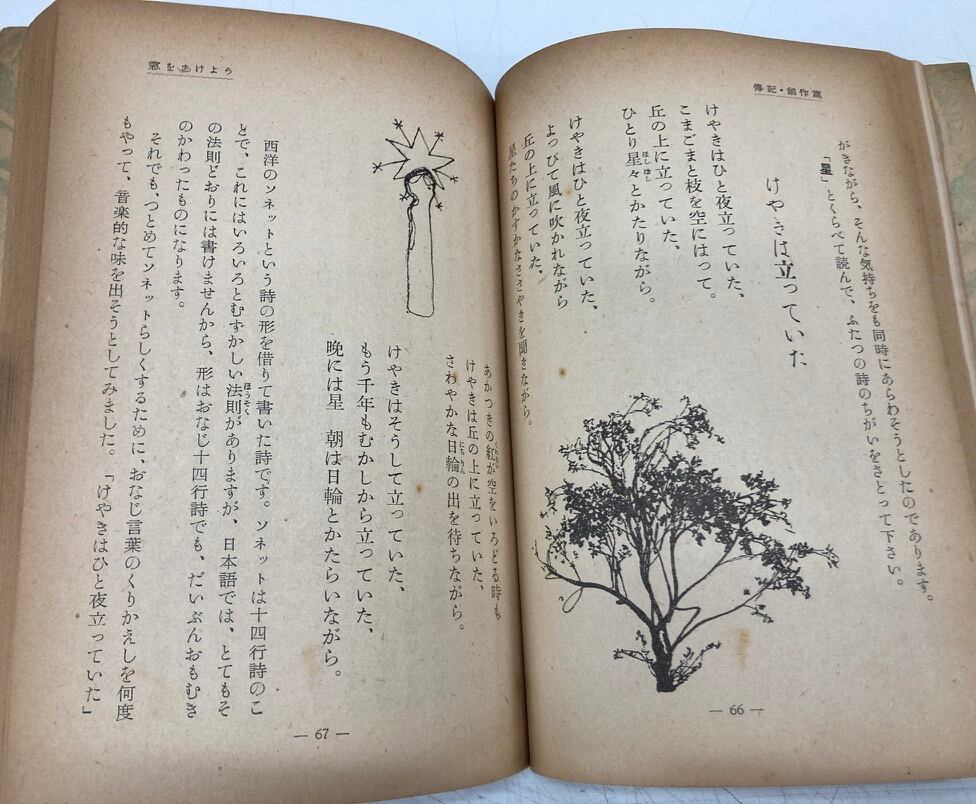 傳記・創作篇
がきながら、そんな気持ちをも同時にあらわそうとしたのであります。
「星」とくらべて読んで、ふたつの詩のちがいをさとって下さい。
けやきは立っていた
けやきはひと夜立っていた、
こまごまと枝を空にはって。
丘の上に立っていた、
ひとり星々とかたりながら。
ほしぼし
けやきはひと夜立っていた、
よっぴて風に吹かれながら
丘の上に立っていた、
星たちのかすかなささやきを聞きながら。
— 66 —
窓をあけよう
あかつきの紅が空をいろどる時も
けやきは丘の上に立っていた、
さわやかな日輪の出を待ちながら。
にちりん
けやきはそうして立っていた、
もう千年もむかしから立っていた、
晩には星 朝は日輪とかたらいながら。
西洋のソネットという詩の形を借りて書いた詩です。ソネットは十四行詩のこ
とで、これにはいろいろとむずかしい法則がありますが、日本語では、とてもそ
ほうそく
の法則どおりには書けませんから、形はおなじ十四行詩でも、だいぶんおもむき
のかわったものになります。
それでも、つとめてソネットらしくするために、おなじ言葉のくりかえしを何度
もやって、音楽的な味を出そうとしてみました。「けやきはひと夜立っていた」
— 67 —